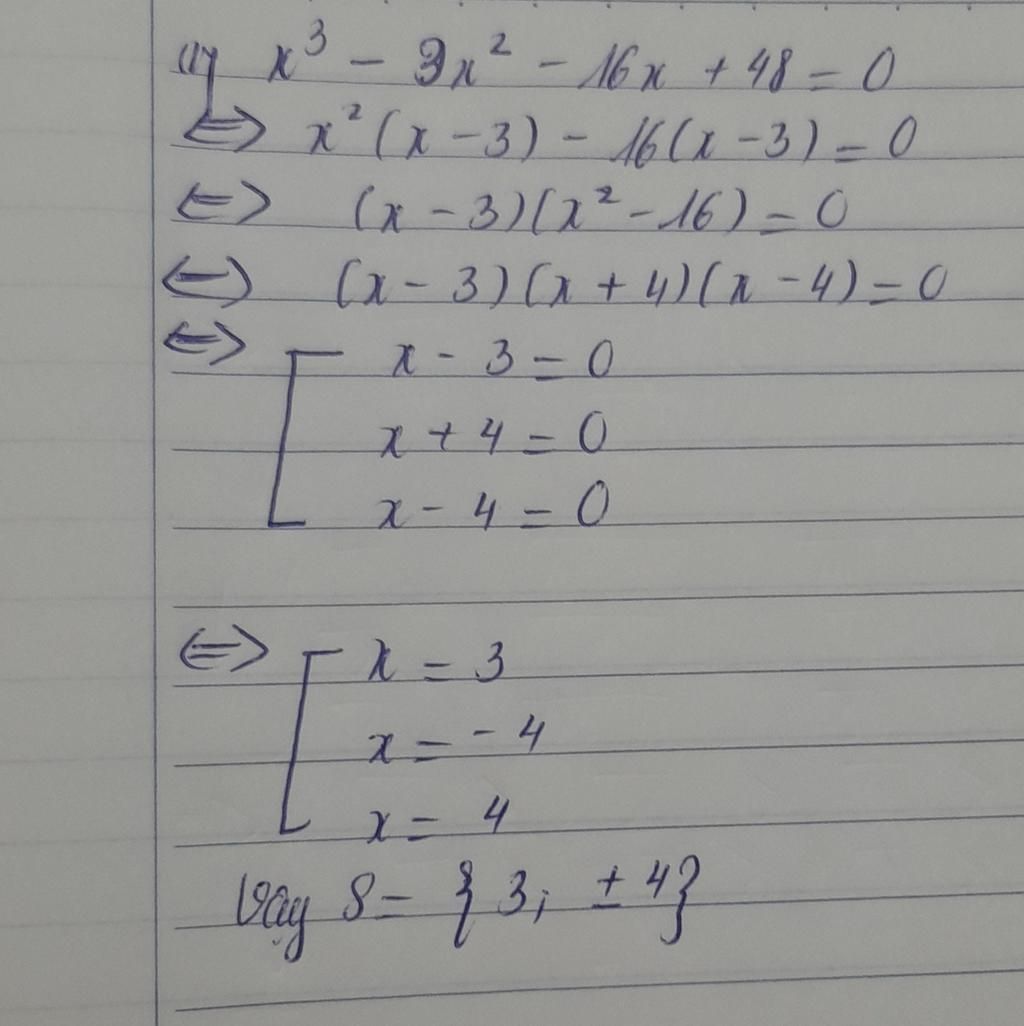 x³ - 3x² - 16x + 48 = 0
⇔ x²(x - 3) - 16(x - 3) = 0
⇔ (x - 3)(x² - 16) = 0
⇔ (x - 3)(x + 4)(x - 4) = 0
⇔ [ x - 3 = 0
x + 4 = 0
x - 4 = 0
⇔ [ x = 3
x = - 4
x = 4
Vậy S = { 3; ± 4}